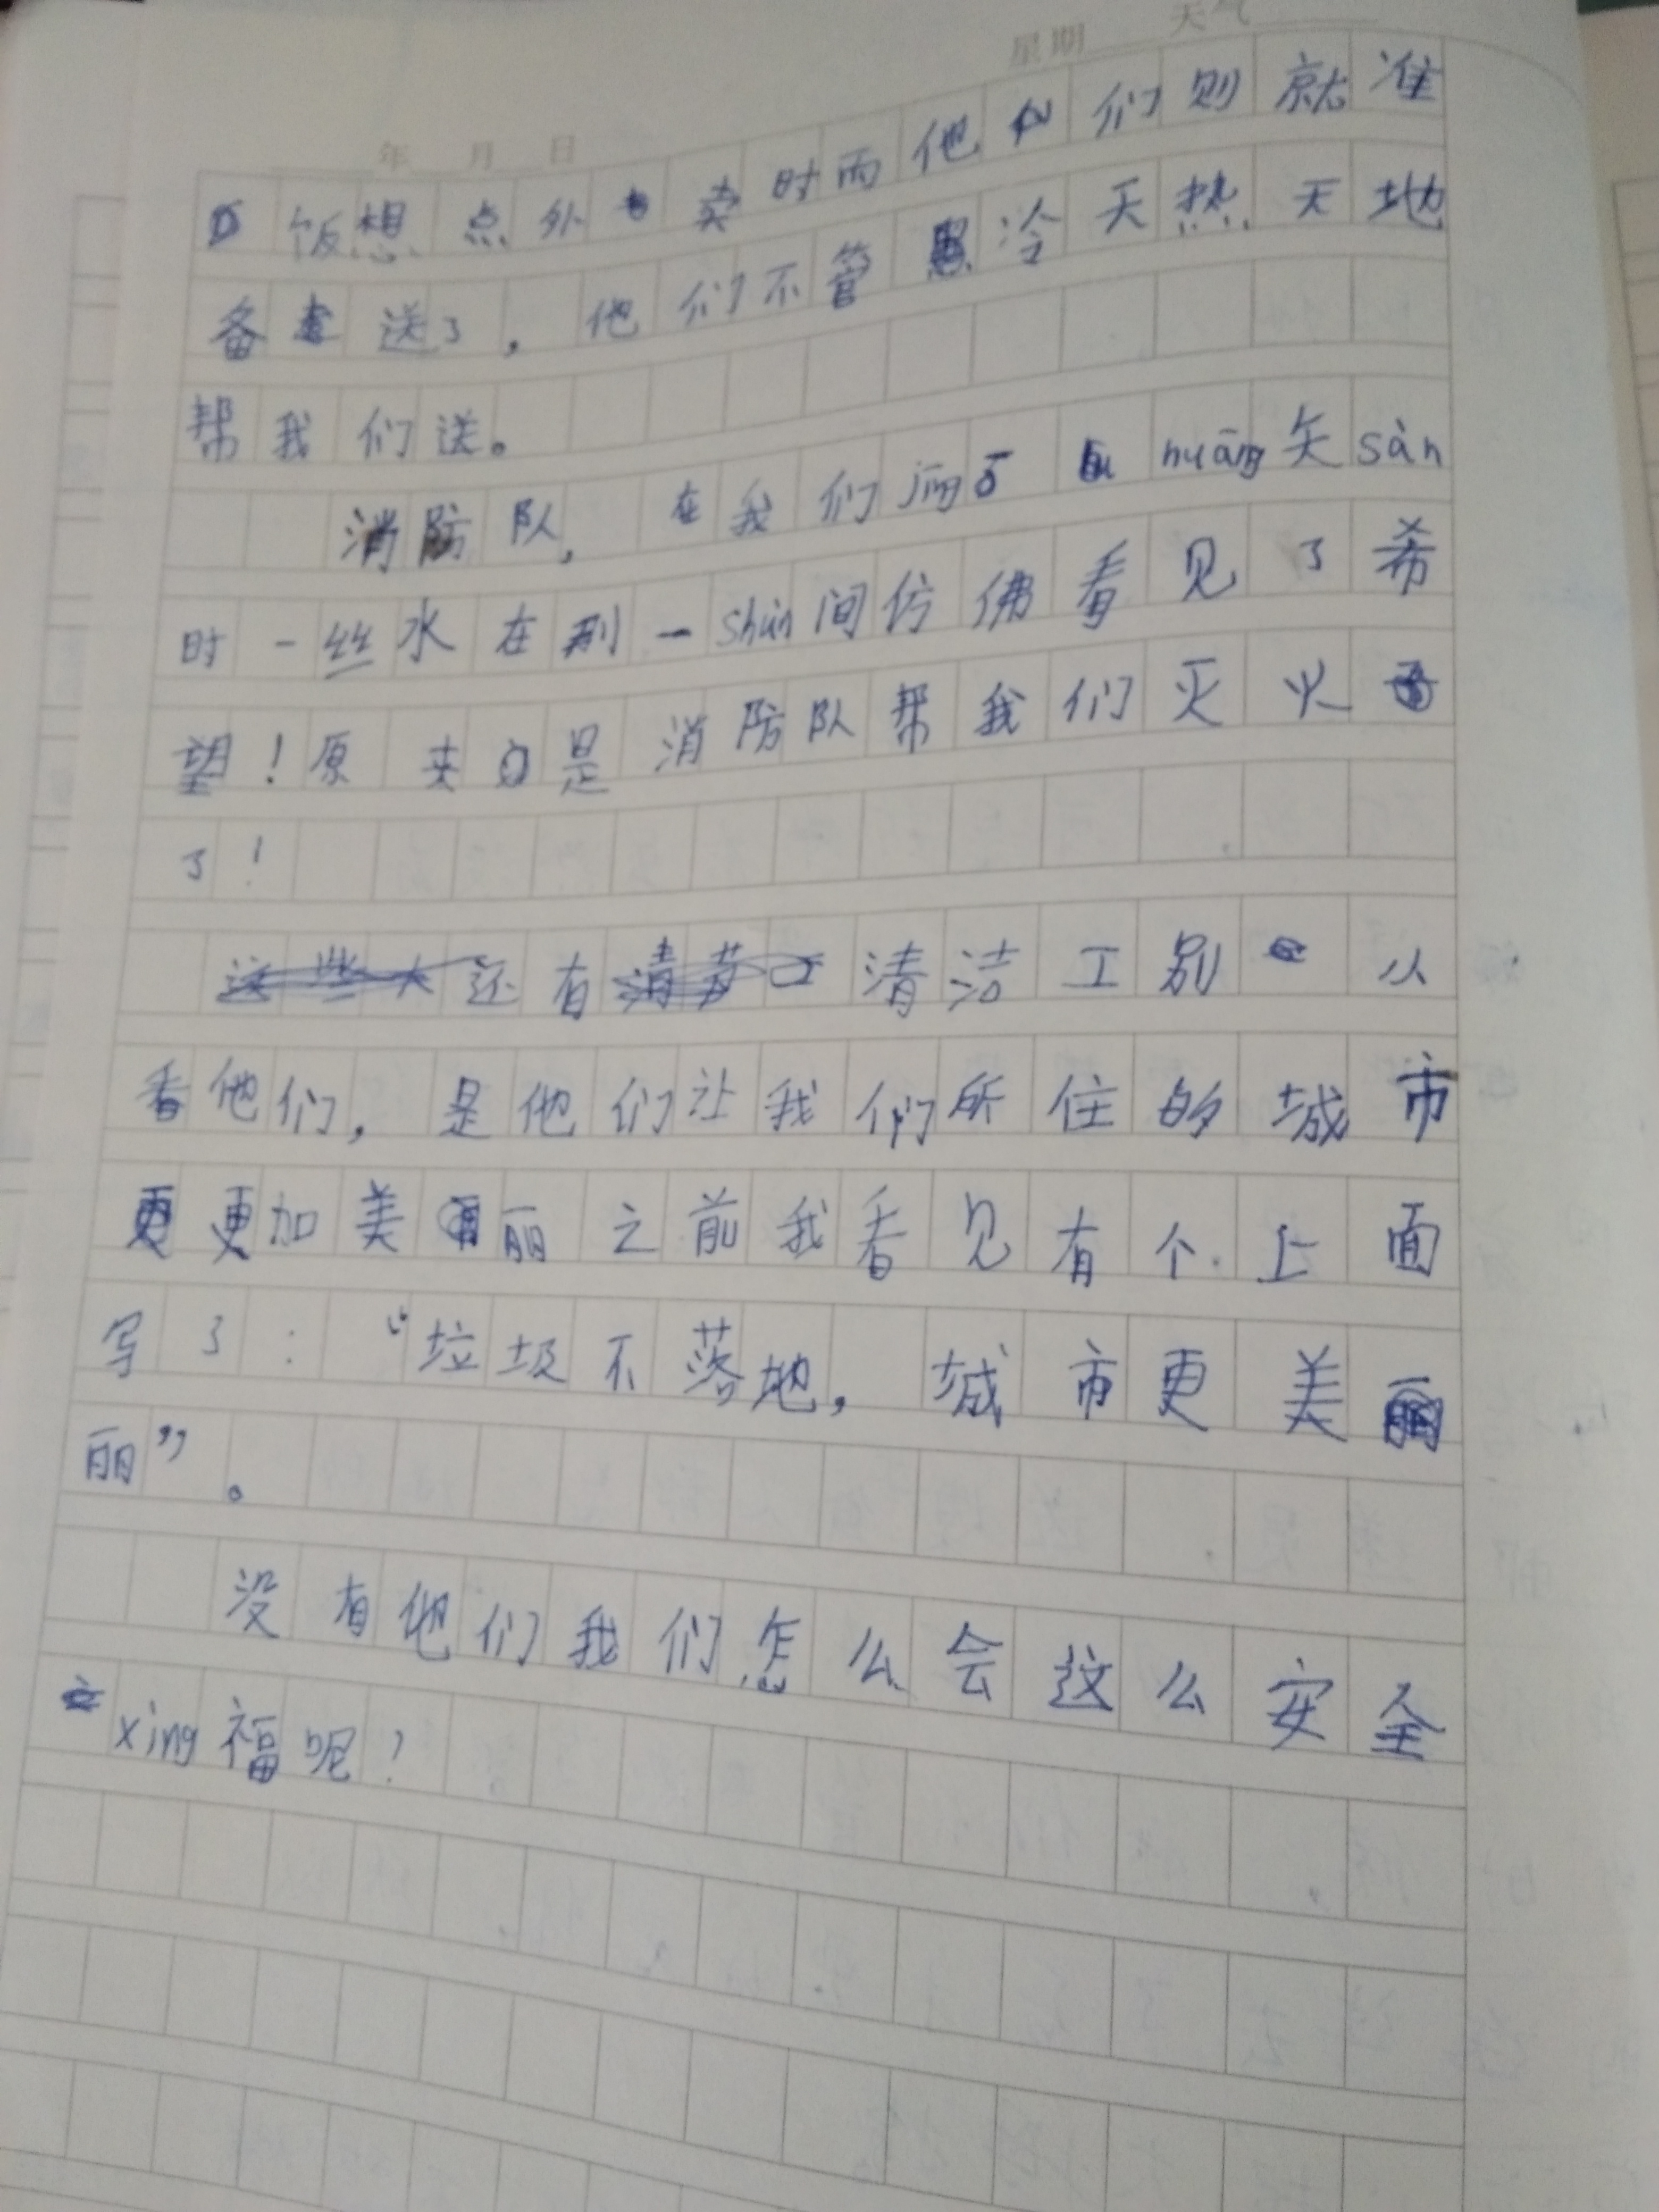 星期 天气
年 月 日
饭想点外卖时而他们则就准
备送了,他们不管冷天热天地
帮我们送。
消防队,在我们jīng huāng失sàn
时一丝水在那一shùn间仿佛看见了希
望!原来是消防队帮我们灭火
了!
还有清洁工别小
看他们,是他们让我们所住的城市
更加美丽之前我看见有个上面
写了:“垃圾不落地,城市更美
丽”。
没有他们我们怎么会这么安全
xìng福呢?